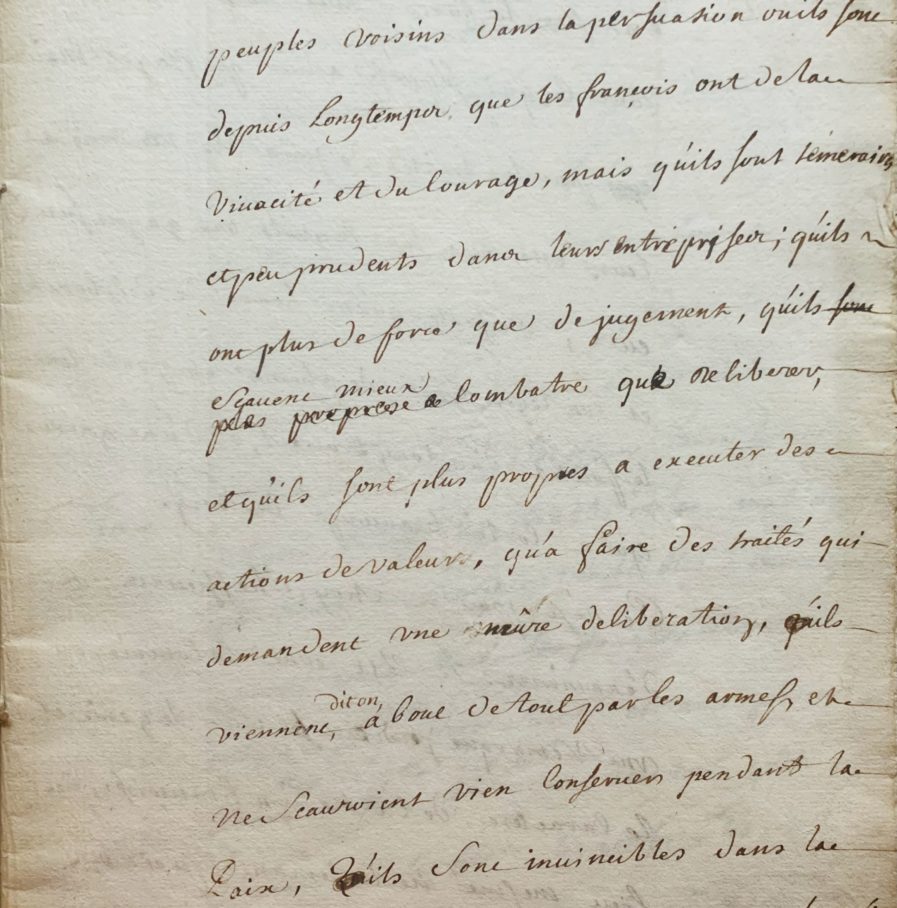 peuples voisins dans la persuasion ou ils sont
depuis Longtemps, que les françois ont de la
vivacité et du Courage, mais qu'ils sont témeraires
et peu prudents dans leurs entreprises; qu'ils
ont plus de force que de jugement, qu'ils sont
sçavent mieux
plus propres a Combatre que deliberer,
et qu'ils sont plus propres a executer des
actions de valeurs, qu'a faire des traités qui
demandent vne mûre deliberation, qu'ils
dit on,
viennent, a bout de tout par les armes, et
ne Scauroient rien Conserver pendant la
Paix, qu'ils Sont invincibles dans la